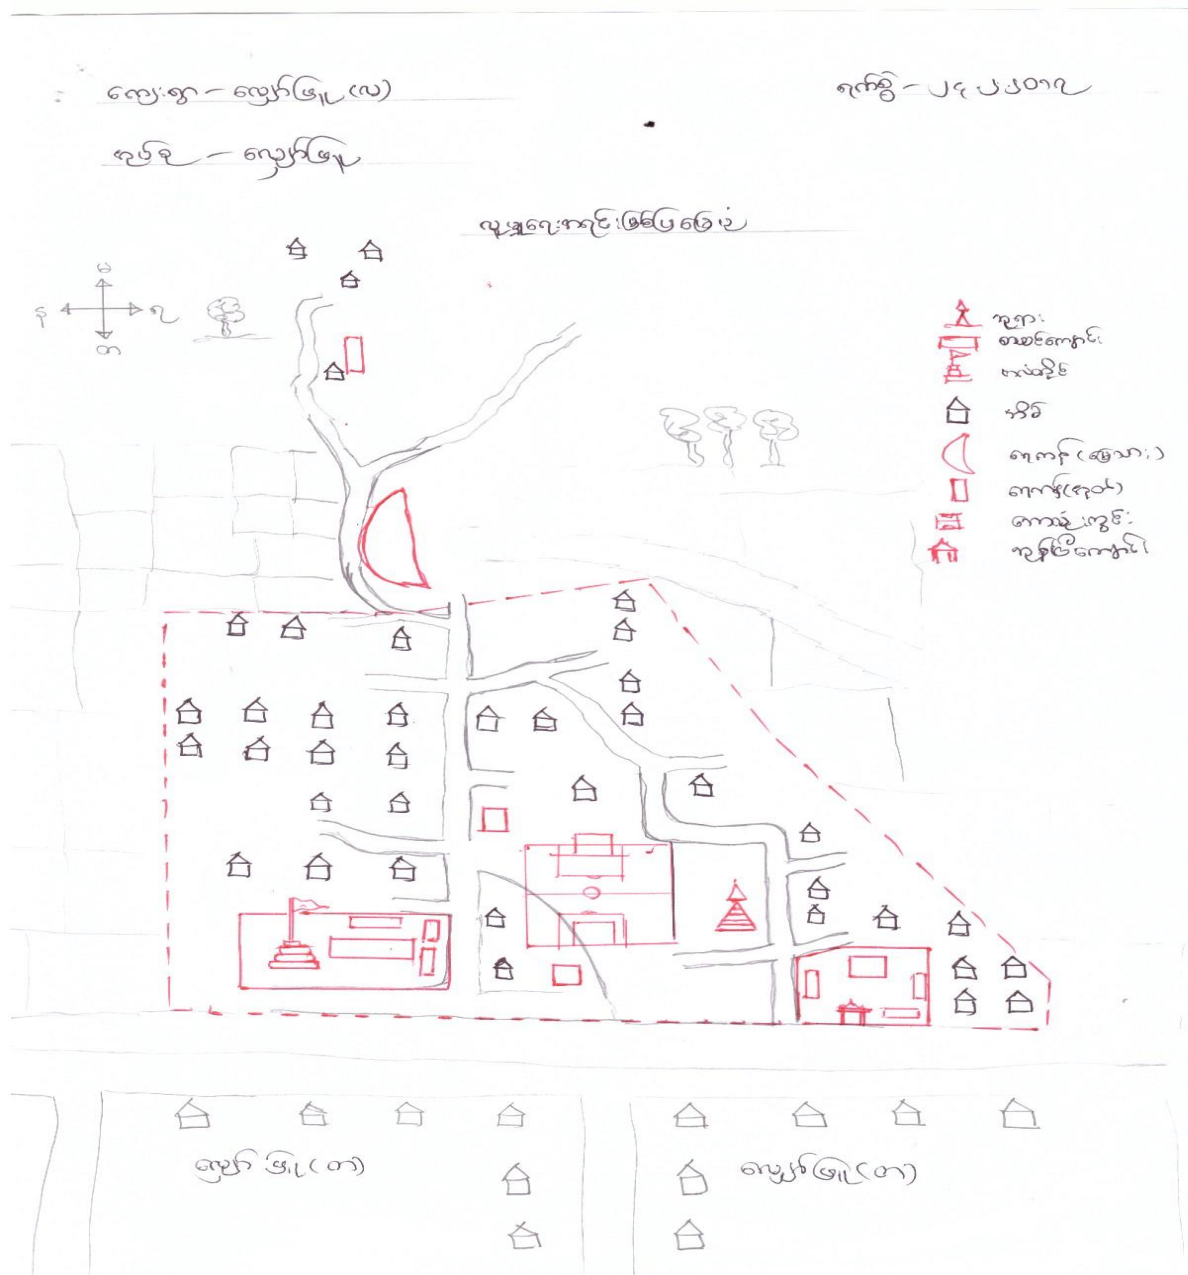 ကျေးရွာ – လျှော်ဖြူ (လ)
ရက်စွဲ – ၂၄.၂.၂၀၁၇
အုပ်စု – လျှော်ဖြူ
လူမှုရေးအရင်းမြစ်ပြမြေပုံ
မ
န
ရ
တ
ဘုရား
စာသင်ကျောင်း
အလံတိုင်
အိမ်
ရေကန် (မြေသား)
ရေကန်(အုတ်)
ဘောလုံးကွင်း
ဘုန်းကြီးကျောင်း
လျှော်ဖြူ (တ)
လျှော်ဖြူ (တ)